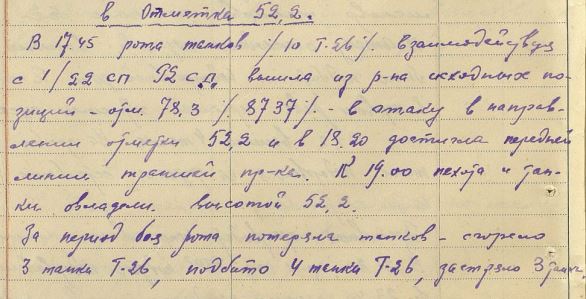 в отметки 52,2.
В 17.45 рота танков /10 Т-26/. взаимодействуя
с 1/22 сп 92 с.д. вышла из р-на исходных по-
зиций – отм. 78,3 /8737/ – в атаку в направ-
лении отметки 52,2 и в 18.20 достигла передней
линии траншей пр-ка. К 19.00 пехота и тан-
ки овладели высотой 52,2.
За период боя рота потеряла танков – сгорело
3 танка Т-26, подбито 4 танка Т-26, застряло 3 танка.